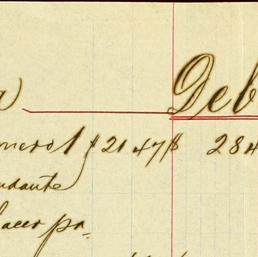 Deb
nero 1 $ 21 47 $ 284
ndante
acer pa.